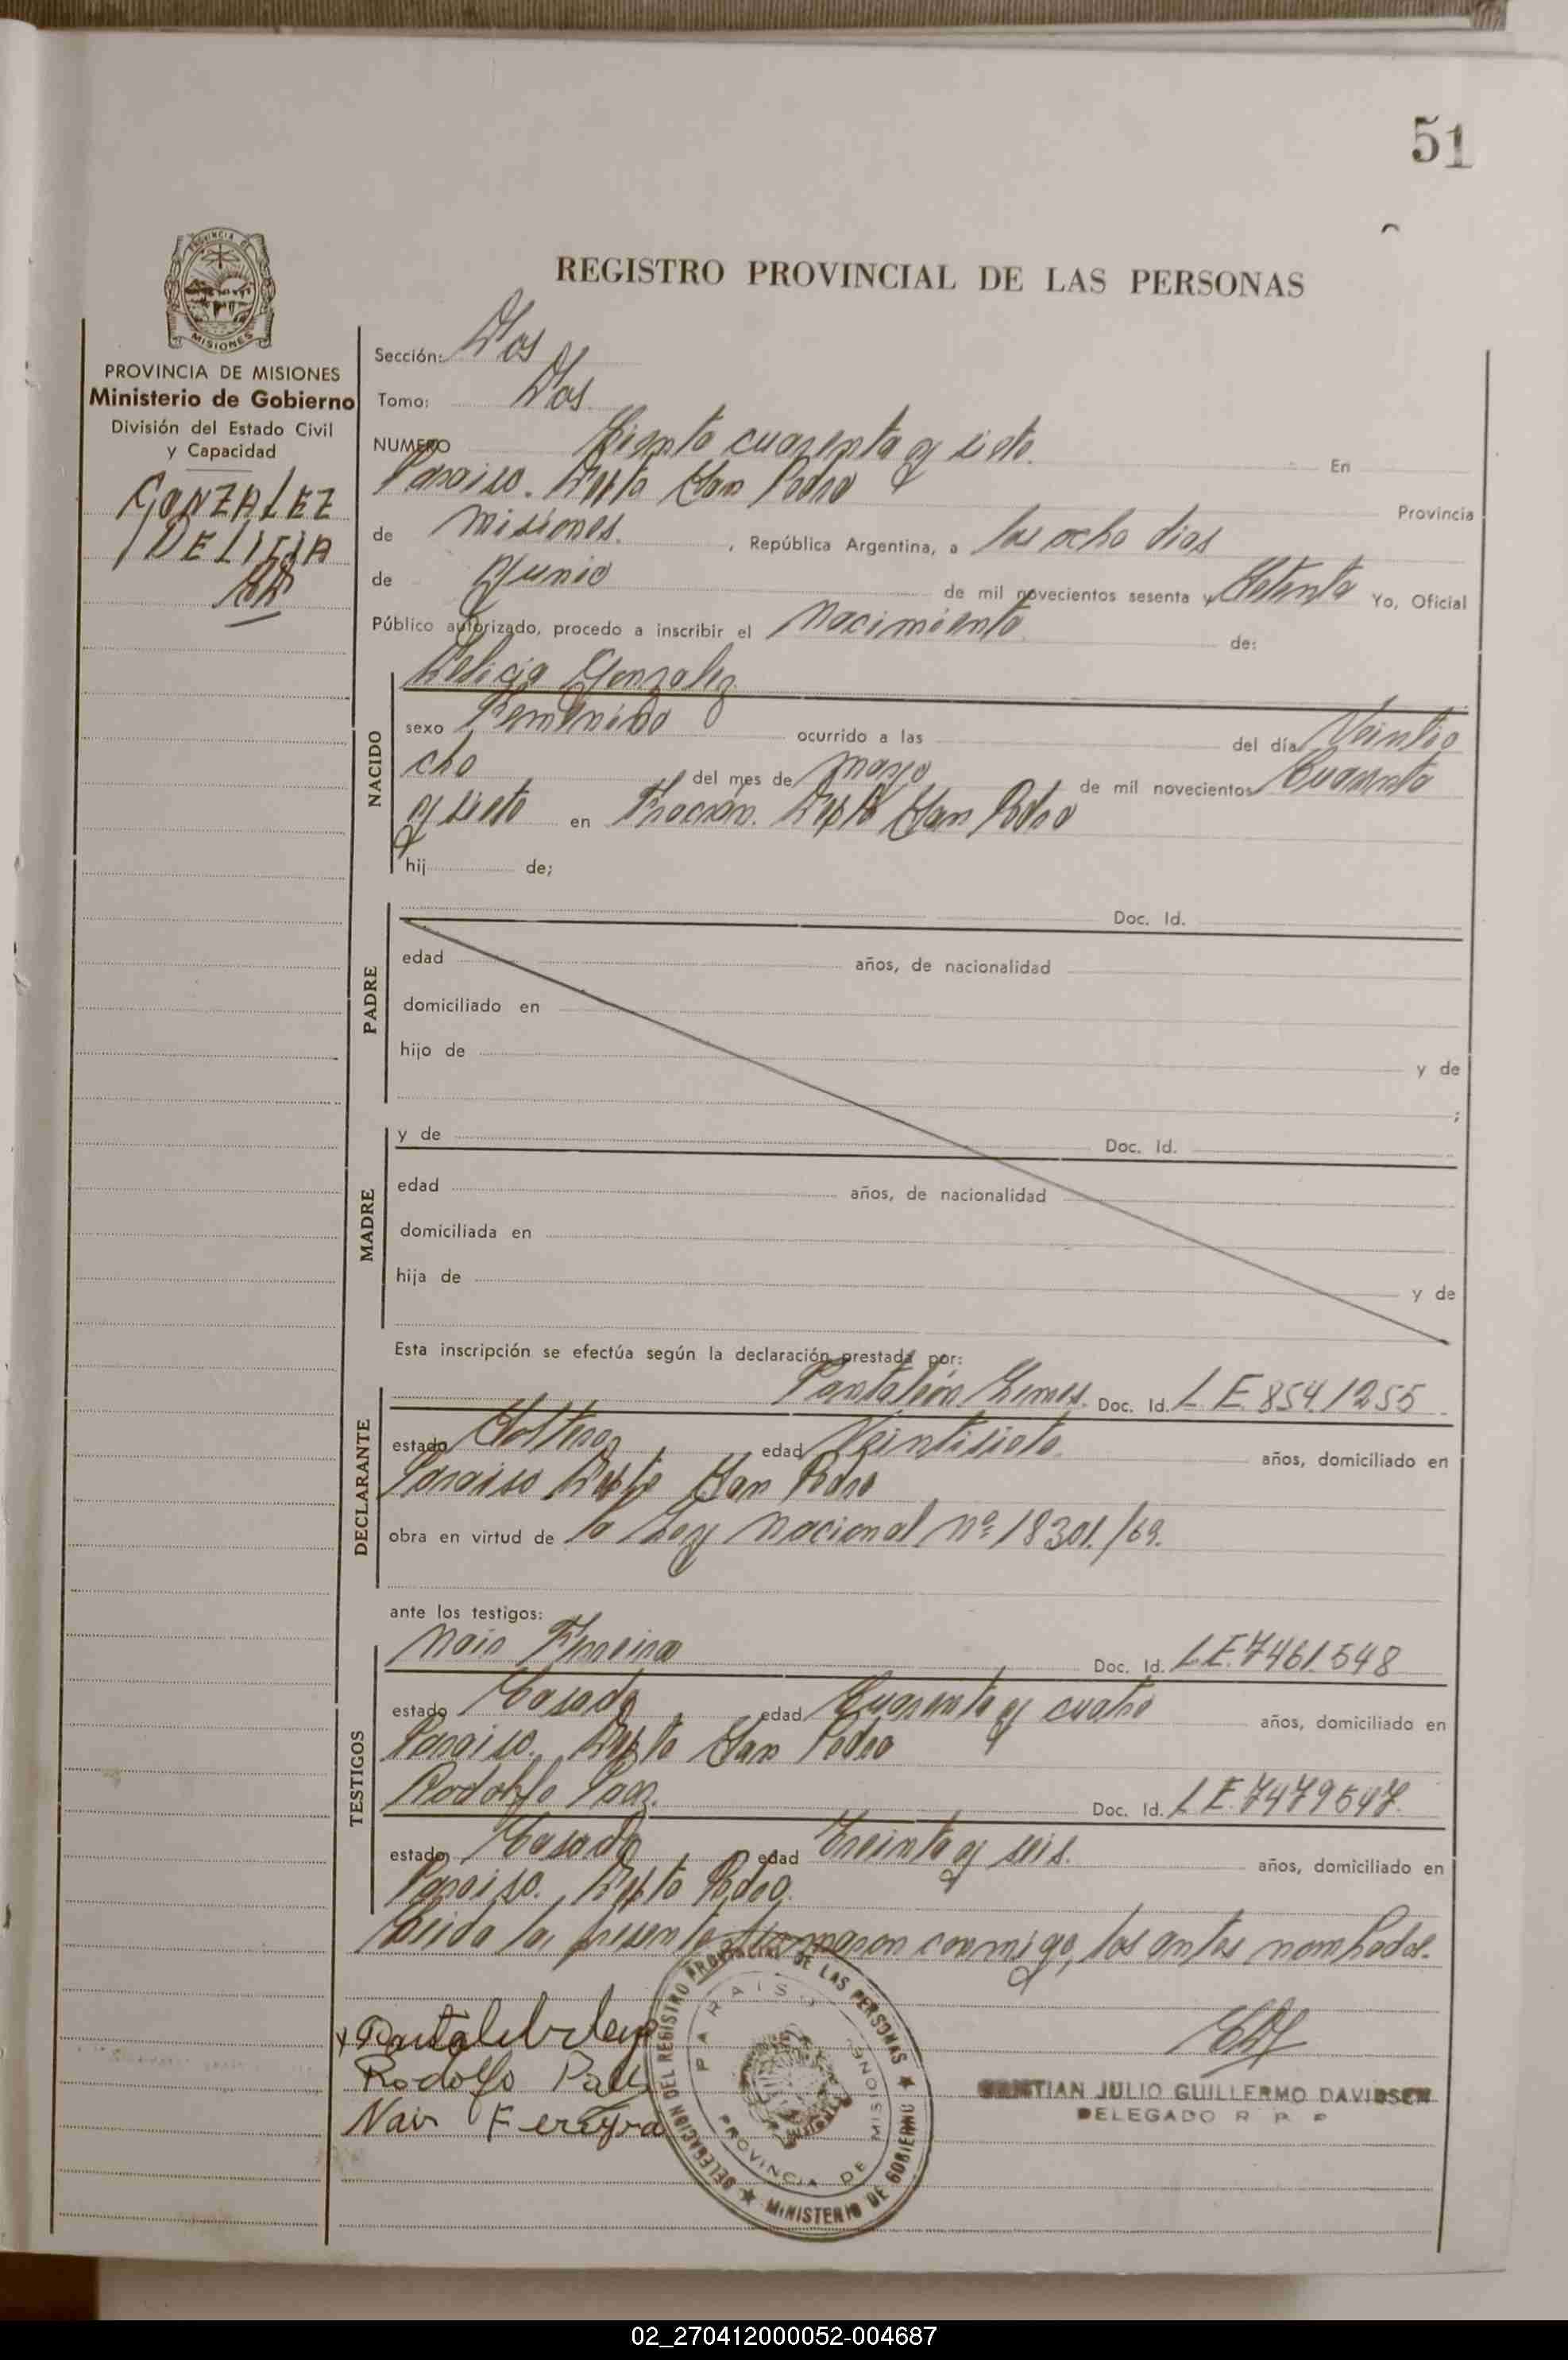 51
REGISTRO PROVINCIAL DE LAS PERSONAS
PROVINCIA DE MISIONES
Ministerio de Gobierno
División del Estado Civil
y Capacidad
GONZALEZ
DELICIA
Sección: Dos
Tomo: Dos
NUMERO Ciento cuarenta y siete. En
Paraiso. Depto San Pedro Provincia
de misiones. , República Argentina, a los ocho dias
de Junio de mil novecientos sesenta y Setenta Yo, Oficial
Público autorizado, procedo a inscribir el Nacimiento de:
NACIDO
Delicia Gonzalez
sexo Femenino ocurrido a las del día Veintio
cho del mes de mayo de mil novecientos Cuarenta
y siete en Fracrán. Depto San Pedro
hij de;
PADRE
Doc. Id.
edad años, de nacionalidad
domiciliado en
hijo de y de
;
MADRE
y de Doc. Id.
edad años, de nacionalidad
domiciliada en
hija de y de
Esta inscripción se efectúa según la declaración prestada por:
DECLARANTE
Pantaleón Doc. Id. L E. 854.1255
estado Soltero edad Veintisiete años, domiciliado en
Paraiso Depto San Pedro
obra en virtud de la Ley Nacional nº 18301./69.
ante los testigos:
TESTIGOS
Nair Ferreira Doc. Id. L E. 7461.548
estado Casado edad Cuarenta y cuatro años, domiciliado en
Paraiso. Depto San Pedro
Rodolfo Doc. Id. L E. 7479547.
estado Casado edad Treinta y seis. años, domiciliado en
Paraiso. Depto Pedro.
Leida la presente firmaron conmigo, los antes nombrados.
Rodolfo
Nair Fereyra
DELEGACION DEL REGISTRO PROVINCIAL DE LAS PERSONAS
MINISTERIO DE GOBIERNO
PARAISO
PROVINCIA DE MISIONES
CRISTIAN JULIO GUILLERMO DAVIDSEN
DELEGADO R P P
02_270412000052-004687